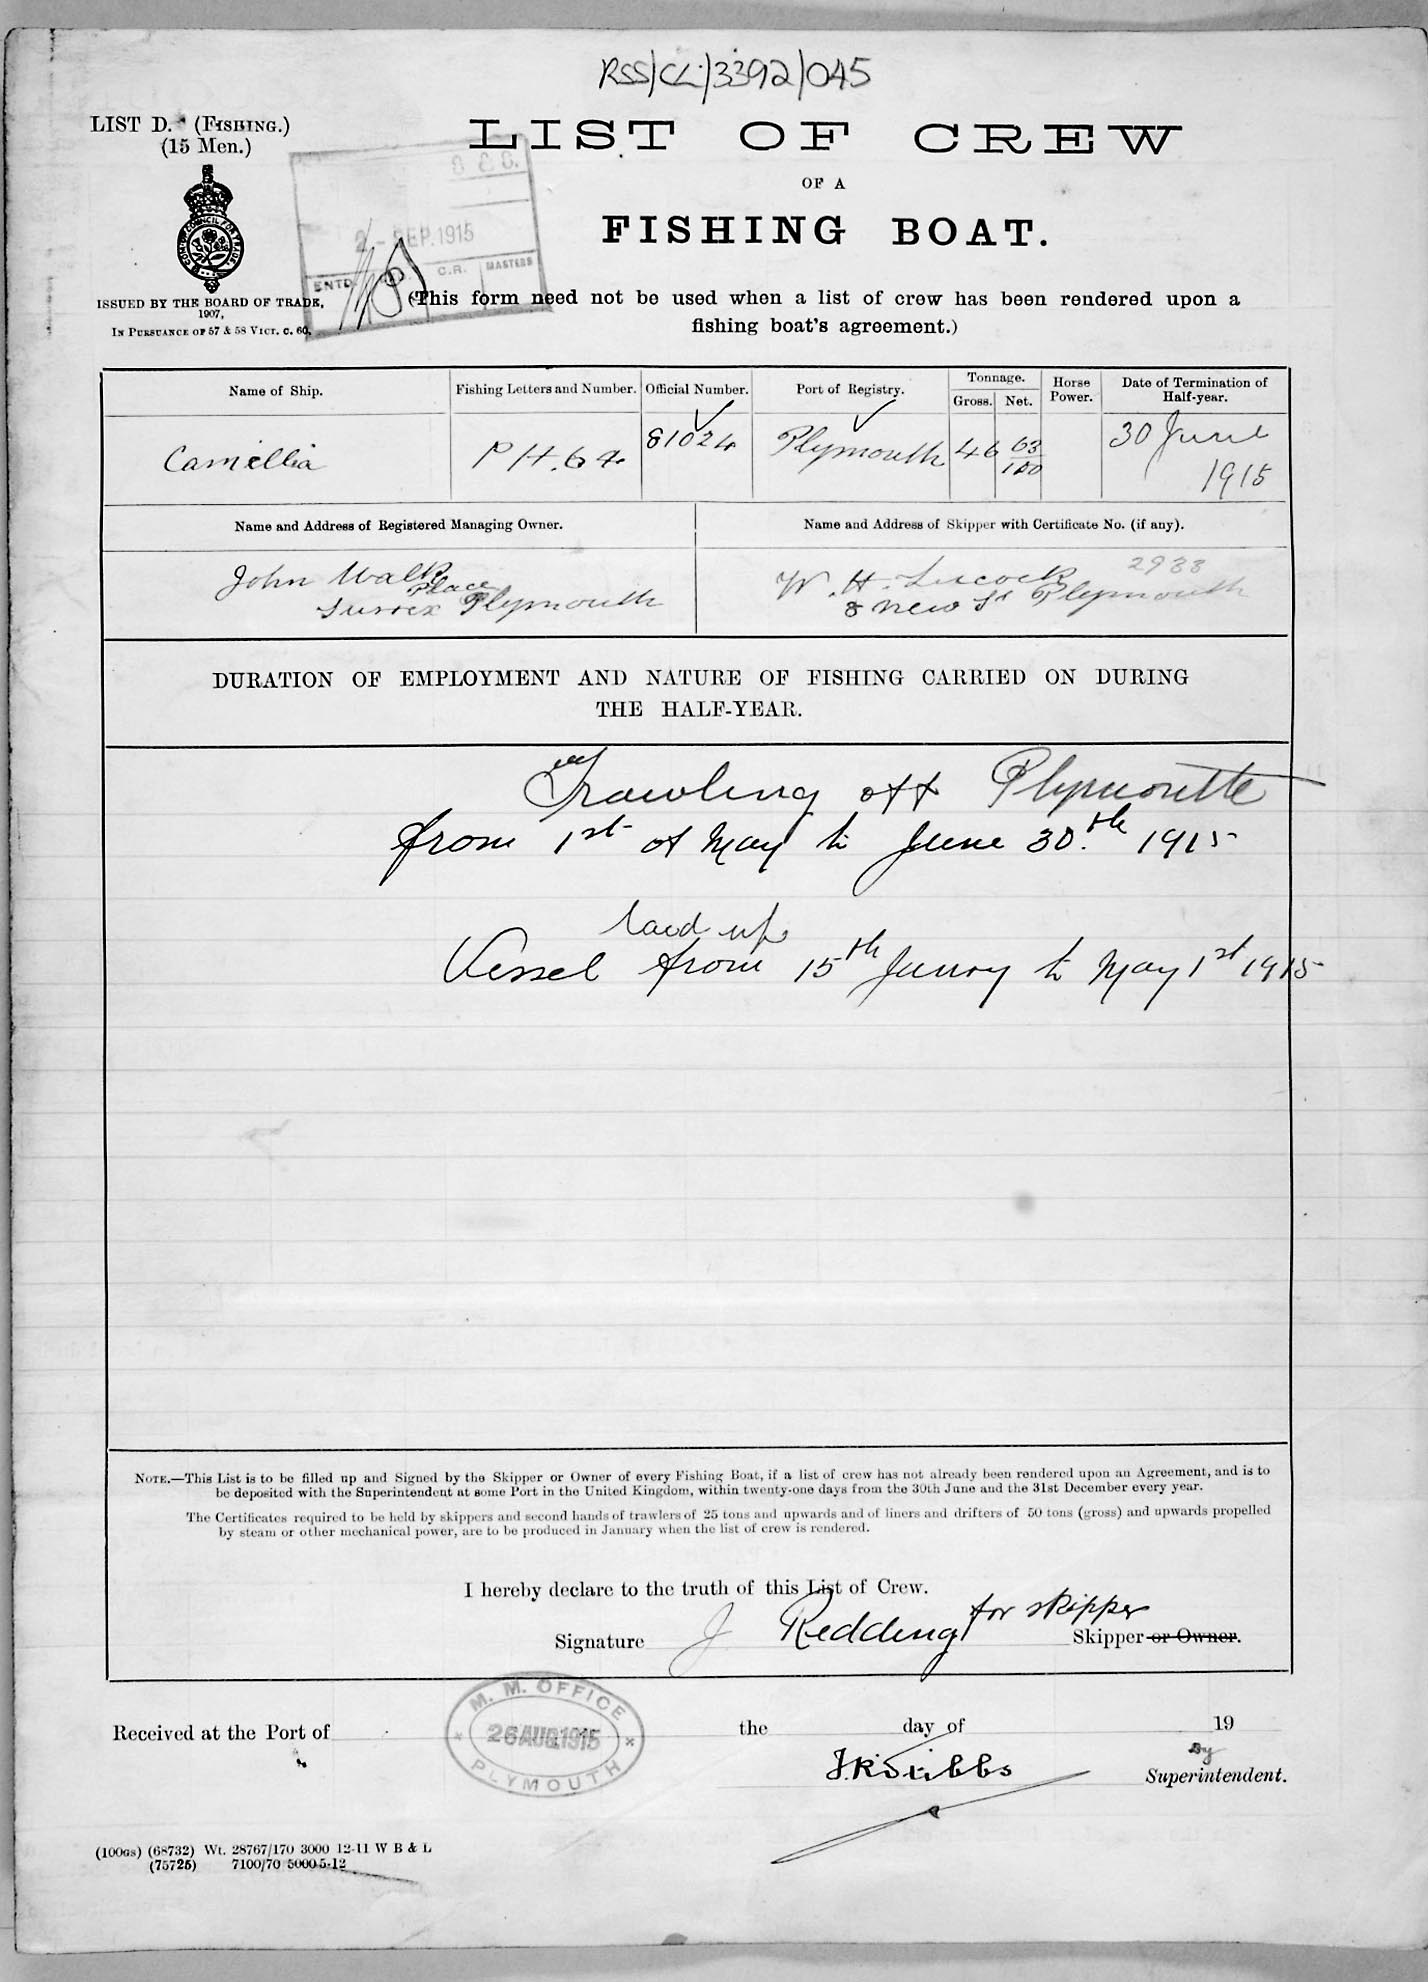 RSS/CL/3392/045
LIST D. (FISHING.)
(15 Men.)
LIST OF CREW
OF A
FISHING BOAT.
2 - SEP. 1915
ENTD.
C.R.
MASTERS
ISSUED BY THE BOARD OF TRADE,
1907,
IN PURSUANCE OF 57 & 58 VICT. C. 60.
(This form need not be used when a list of crew has been rendered upon a
fishing boat's agreement.)
Name of Ship.
Fishing Letters and Number.
Official Number.
Port of Registry.
Tonnage.
Gross.
Net.
Horse Power.
Date of Termination of Half-year.
Camellia
PH. 64
81024
Plymouth
46 63/100
30 June
1915
Name and Address of Registered Managing Owner.
Name and Address of Skipper with Certificate No. (if any).
John Walk
Place
Sussex Plymouth
2933
W. H.
8 New St Plymouth
DURATION OF EMPLOYMENT AND NATURE OF FISHING CARRIED ON DURING
THE HALF-YEAR.
Trawling off Plymouth
from 1st of May to June 30th 1915
laid up
Vessel from 15th Janry to May 1st 1915
NOTE.—This List is to be filled up and Signed by the Skipper or Owner of every Fishing Boat, if a list of crew has not already been rendered upon an Agreement, and is to
be deposited with the Superintendent at some Port in the United Kingdom, within twenty-one days from the 30th June and the 31st December every year.
The Certificates required to be held by skippers and second hands of trawlers of 25 tons and upwards and of liners and drifters of 50 tons (gross) and upwards propelled
by steam or other mechanical power, are to be produced in January when the list of crew is rendered.
I hereby declare to the truth of this List of Crew.
Signature J Redding for skipper Skipper or Owner.
M. M. OFFICE
26 AUG 1915
PLYMOUTH
Received at the Port of the day of 19
By
Superintendent.
(100GS) (68732) Wt. 28767/170 3000 12-11 W B & L
(75725) 7100/70 5000 5-12